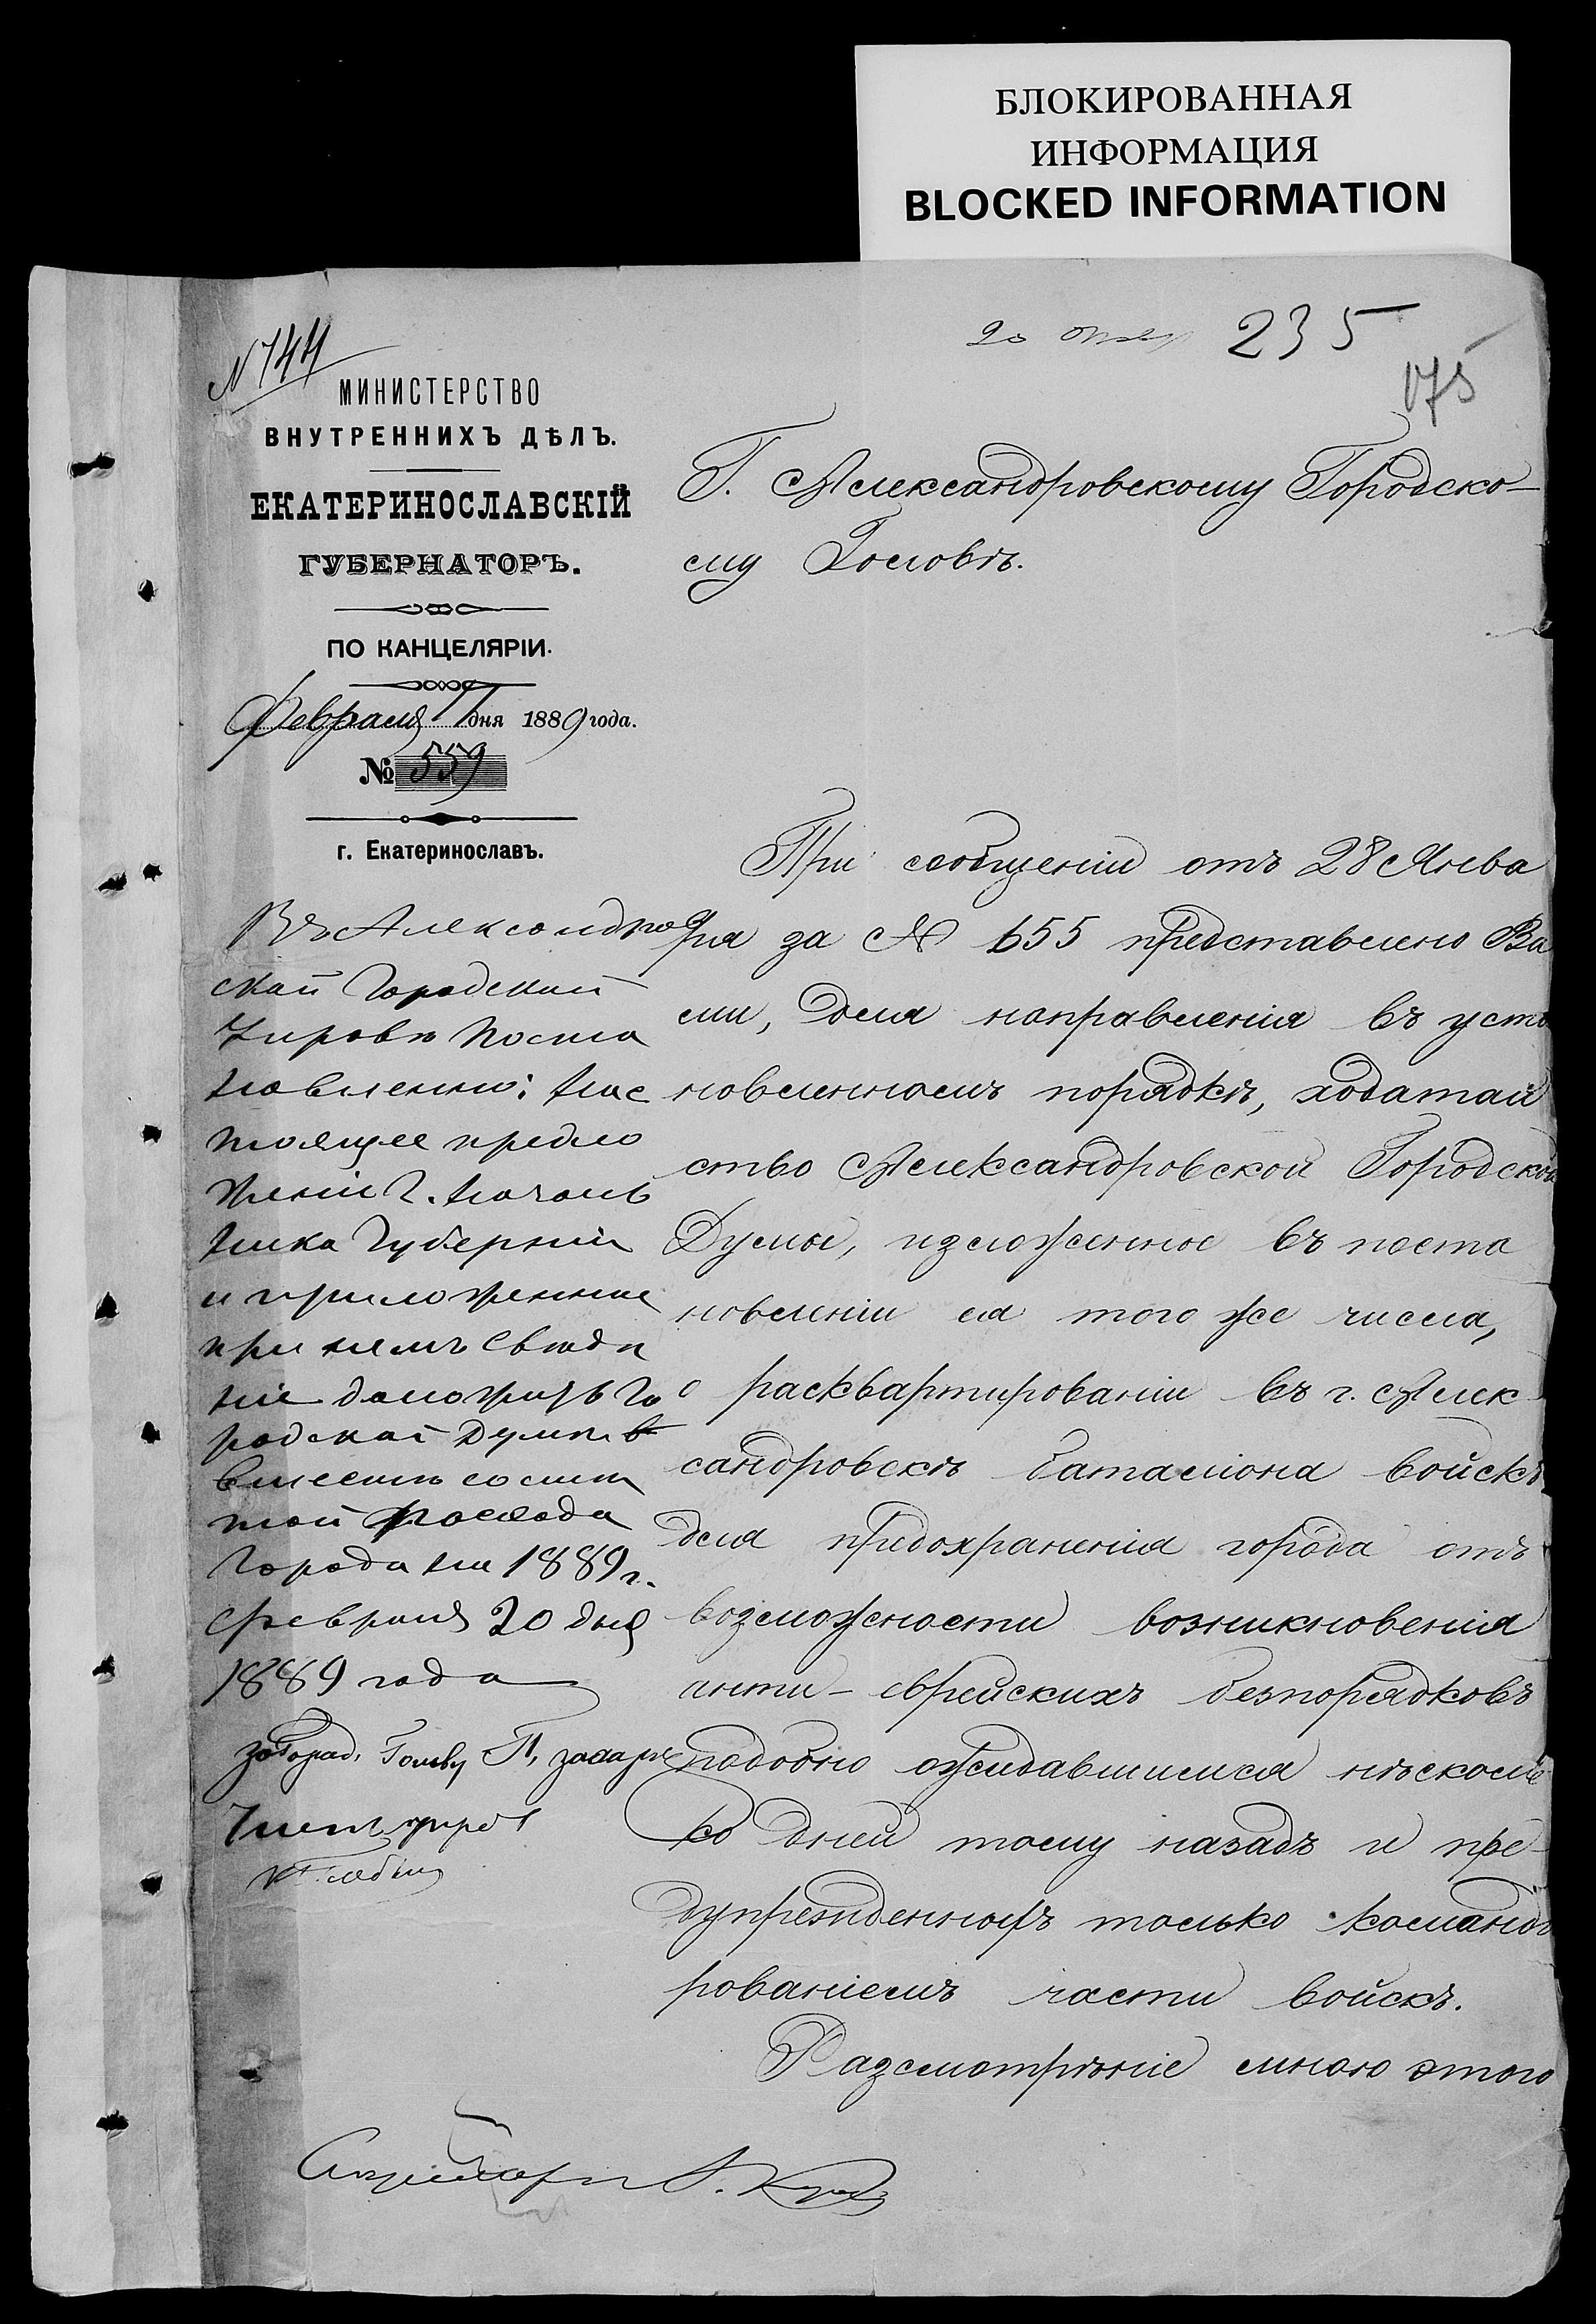 БЛОКИРОВАННАЯ
ИНФОРМАЦИЯ
BLOCKED INFORMATION
235
175
N 744
МИНИСТЕРСТВО
ВНУТРЕННИХЪ ДѢЛЪ.
ЕКАТЕРИНОСЛАВСКІЙ
ГУБЕРНАТОРЪ.
ПО КАНЦЕЛЯРІИ.
Февраля дня 1889 года.
№ 559
г. Екатеринославъ.
Г. Александровскому Городско-
му Головѣ.
При сообщеніи отъ 28 Янва
ря за № 655 представлено Ва
ми, для направленія въ уста
новленномъ порядкѣ, ходатай
ство Александровской Городской
Думы, изложенное въ поста
новленіи ея того же числа,
о расквартированіи въ г. Алек-
сандровскѣ баталіона войскъ
для предохраненія города отъ
возможности возникновенія
анти-еврейскихъ безпорядковъ
подобно ожидавшимся нѣсколь
ко дней тому назадъ и пре-
дупрежденныхъ только команди
рованіемъ части войскъ.
Разсмотрѣніе мною этого
Въ Александров
ской Городской
Управѣ поста
новлено: нас
тоящее предло
женіе Г. Началь
ника Губерніи
и приложенные
при немъ свѣдѣ
нія доложить Го
родской Думѣ в
вмѣстѣ со смѣ
той расхода
города на 1889 г.
Февраля 20 дня
1889 года
за Город. Голову П. Захарь
Членъ управы